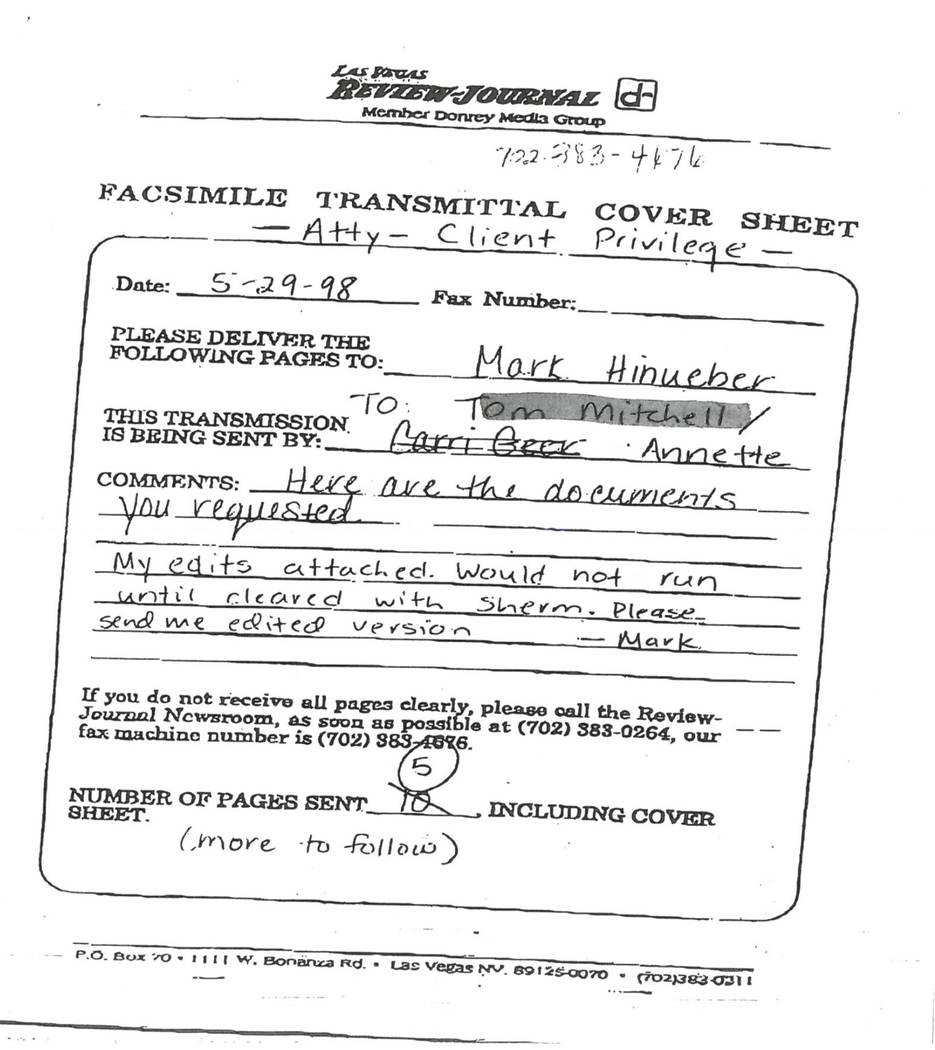 LAS VEGAS
REVIEW-JOURNAL d-
Member Donrey Media Group
702-383-4676
FACSIMILE TRANSMITTAL COVER SHEET
— Atty - Client Privilege —
Date: 5-29-98 Fax Number:
PLEASE DELIVER THE
FOLLOWING PAGES TO: Mark Hinueber
TO: Tom Mitchell/
THIS TRANSMISSION
IS BEING SENT BY: Carri Geer Annette
COMMENTS: Here are the documents
you requested.
My edits attached. Would not run
until cleared with Sherm. Please
send me edited version — Mark
If you do not receive all pages clearly, please call the Review-
Journal Newsroom, as soon as possible at (702) 383-0264, our
fax machine number is (702) 383-4676.
5
NUMBER OF PAGES SENT 10, INCLUDING COVER
SHEET.
(more to follow)
P.O. Box 70 • 1111 W. Bonanza Rd. • Las Vegas NV. 89125-0070 • (702)383-0311